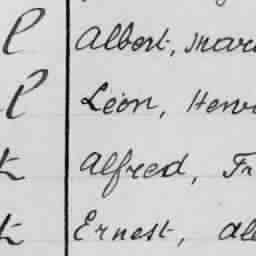 l Albert, Mar
l Léon, Henr
t Alfred, Fr
t Ernest, Al